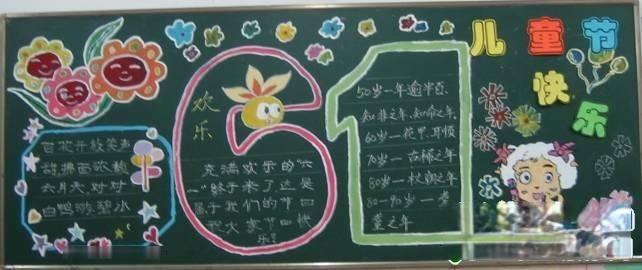 儿童节
快乐
欢乐
百花开放笑声
甜拂面
六月天对对
白鸭游碧水
充满欢乐的“六
一”终于来了这是
属于我们的节日
祝大家节日快
乐!
50岁一年逾半百、
知非之年、知命之年、
60岁一花甲、耳顺
70岁一古稀之年
80岁一杖朝之年
80-90岁一耄
耋之年
61